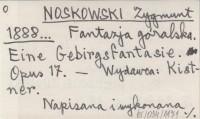 NOSKOWSKI Zygmunt
1888... Fantazja góralska.
Eine Gebirgsfantasie. -
Opus 17. — Wydawca: Kist-
ner.
Napisana i wykonana